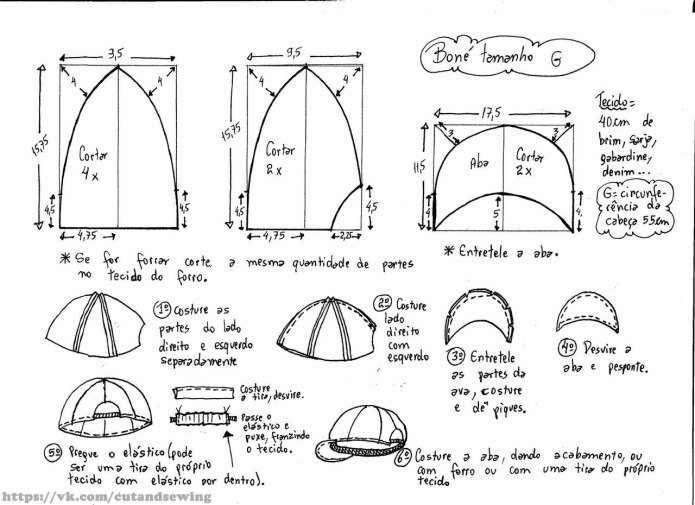 Boné tamanho G
9,5
4
4
15,75
Cortar
4x
4,5
4,5
4,75
9,5
4
4
15,75
Cortar
2x
4,5
4,5
4,75
2,25
17,5
3
3
11,5
Aba
Cortar
2x
4
5
4
Tecido=
40cm de
brim, sarja,
gabardine,
denim...
G= circunfe-
rência da
cabeça 55cm
* Se for forrar corte a mesma quantidade de partes
no tecido do forro.
* Entretele a aba.
1º Costure as
partes do lado
direito e esquerdo
separadamente
2º Costure
lado
direito
com
esquerdo
3º Entretele
as partes da
ava, costure
e dê piques.
4º Desvire a
aba e pesponte.
Costure
a tira, desvire.
Passe o
elástico e
puxe, franzindo
o tecido.
5º Pregue o elástico (pode
ser uma tira do próprio
tecido com elástico por dentro).
6º Costure a aba, dando acabamento, ou
com forro ou com uma tira do próprio
tecido
https://vk.com/cutandsewing